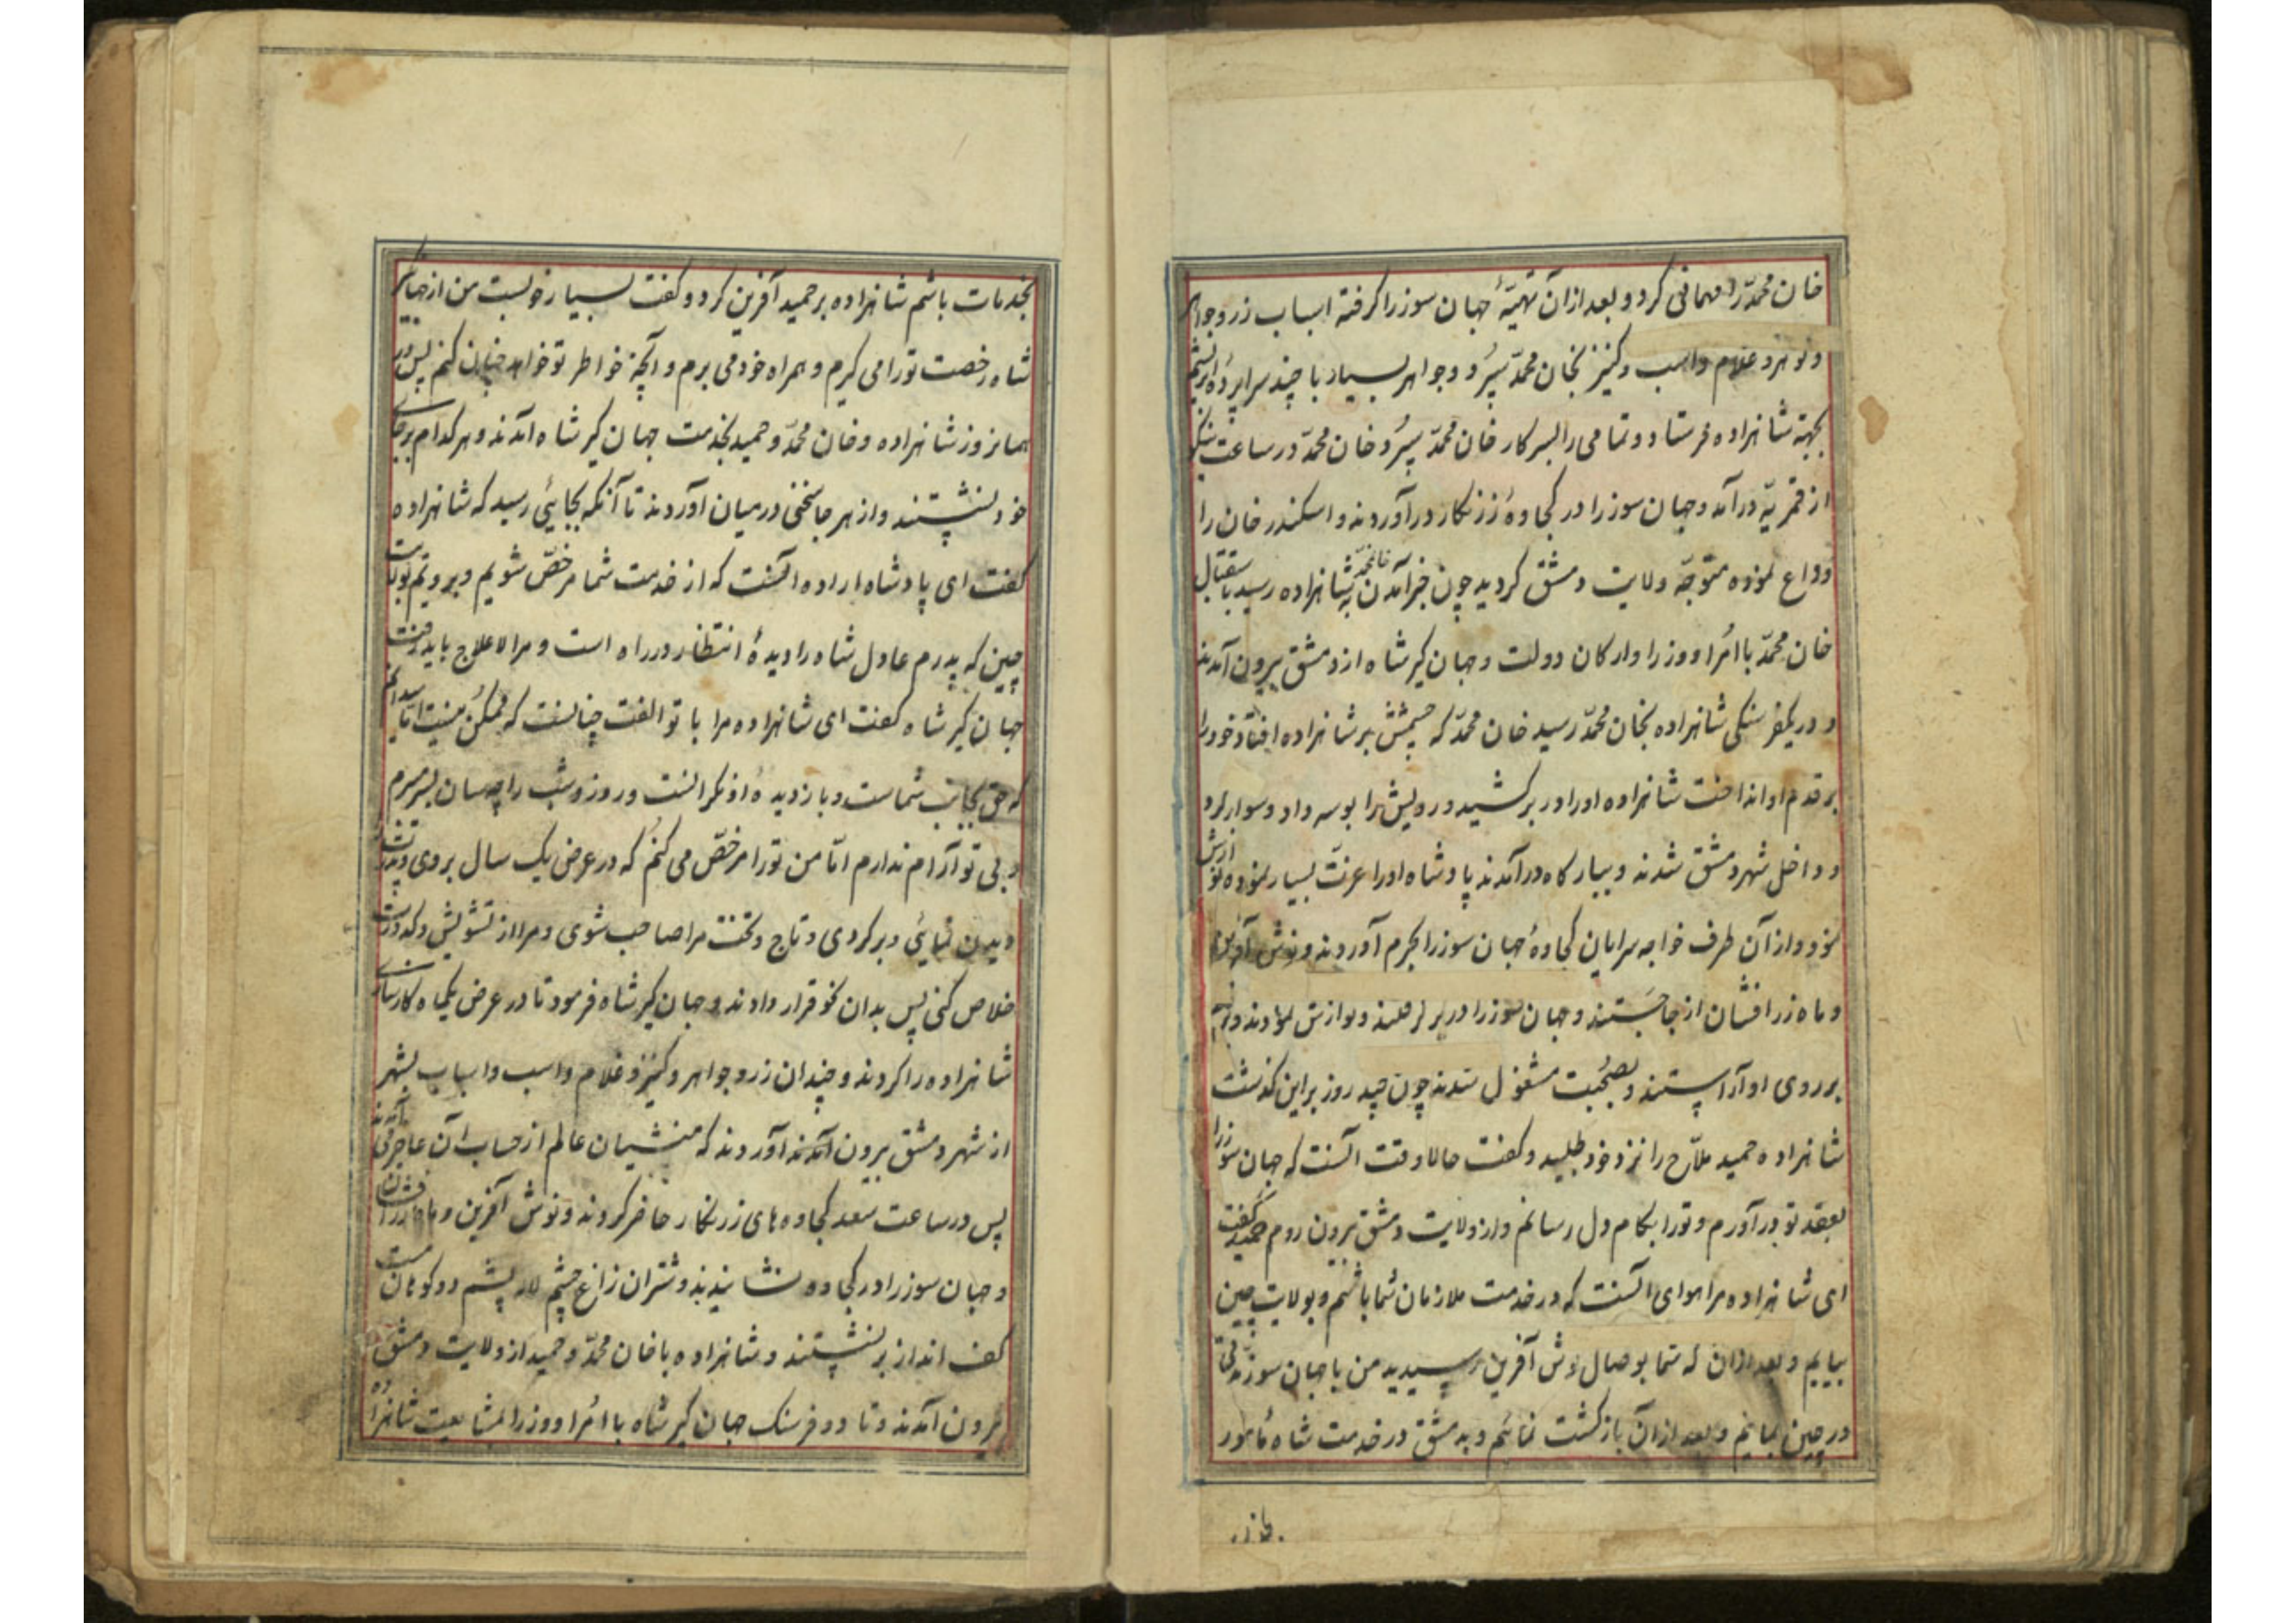 خان محمّد را مهمانی کرد و بعد از آن تهیّهٔ جهان سوز را گرفته اسباب زر و جواهر
و نوهزد غلام و اسب و کنیز بخان محمّد سپرد و جواهر بسیار با چند سراپرده ابریشم
بجهة شاهزاده فرستاد و تمامی را بسرکار خان محمّد سپرد و خان محمّد در ساعت نیکو
از قمریّه درآمد و جهان سوز را در کجاوهٔ زرنکار درآوردند و اسکندر خان را
وداع نموده متوجّه ولایت دمشق کردید چون خبر آمدن خان محمّد بشاهزاده رسید باستقبال
خان محمّد با امرا و وزرا و ارکان دولت و جهان کیر شاه از دمشق بیرون آمدند
و در یکفرسنکی شاهزاده بخان محمّد رسید خان محمّد که چشمش بر شاهزاده افتاد خود را
بر قدم او انداخت شاهزاده او را در بر کشید و رویش را بوسه داد و سوار کرد
و داخل شهر دمشق شدند و ببارکاه درآمدند پادشاه او را عزّت بسیار نموده نوازش
نمود و از آن طرف خواجه سرایان کجاوهٔ جهان سوز را بحرم آوردند و نوش آفرین
و ماه زرافشان از جا جستند و جهان سوز را در بر کرفتند و نوازش نمودند و بزم
بر روی او آراستند و بصحبت مشغول شدند چون چند روز براین کذشت
شاهزاده حمید ملاّح را نزد خود طلبید و کفت حالا وقت آنست که جهان سوز را
بعقد تو درآورم و تو را بکام دل رسانم و از ولایت دمشق بیرون روم حمید کفت
ای شاهزاده مرا هوای آنست که در خدمت ملازمان شما باشم و بولایت چین
بیایم و بعد از آن که شما بوصال نوش آفرین رسیدید من با جهان سوز مدّتی
در چین بمانیم و بعد از آن بازکشت نمائیم و به دمشق در خدمت شاه مأمور
بخدمات باشم شاهزاده بر حمید آفرین کرد و کفت بسیار خوبست من از جهانکیر
شاه رخصت تو را می کیرم و همراه خود می برم و آنچه خواطر تو خواهد چنان کنم پس در
همانروز شاهزاده و خان محمّد و حمید بخدمت جهان کیر شاه آمدند و هر کدام برجای
خود نشستند و از هر جا سخنی در میان آوردند تا آنکه بجائی رسید که شاهزاده
کفت ای پادشاه اراده آنست که از خدمت شما مرخصّ شویم و برویم بولایت
چین که پدرم عادل شاه را دیدهٔ انتظار در راه است و مرا لاعلاج باید رفت
جهان کیر شاه کفت ای شاهزاده مرا با تو الفت چنانست که ممکن نیست امّا میدانم
که حق بجانب شماست و باز دیده او نکرانست و روز و شب را چه سان بسر برم
و بی تو آرام ندارم امّا من تو را مرخصّ می کنم که در عرض یک سال بروی و پدرت
دیدن نمائی و برکردی و تاج و تخت مرا صاحب شوی و مرا از تشویش و کدورت
خلاص کنی پس بدان نحو قرار دادند و جهان کیر شاه فرمود تا در عرض یکماه کارسازی
شاهزاده را کردند و چندان زر و جواهر و کنیز و غلام و اسب و اسباب بشهر
از شهر دمشق بیرون آمدند آوردند که منشیان عالم از حساب آن عاجز
پس در ساعت سعد کجاوه های زرنکار حاضر کردند و نوش آفرین و ماه زرافشان
و جهان سوز را در کجاوه نشانیدند و شتران زاغ چشم لاله پشم دوکوهان مست
کف انداز برنشستند و شاهزاده با خان محمّد و حمید از ولایت دمشق
بیرون آمدند و تا دو فرسنک جهان کیر شاه با امرا و وزرا بمشایعت شاهزاده